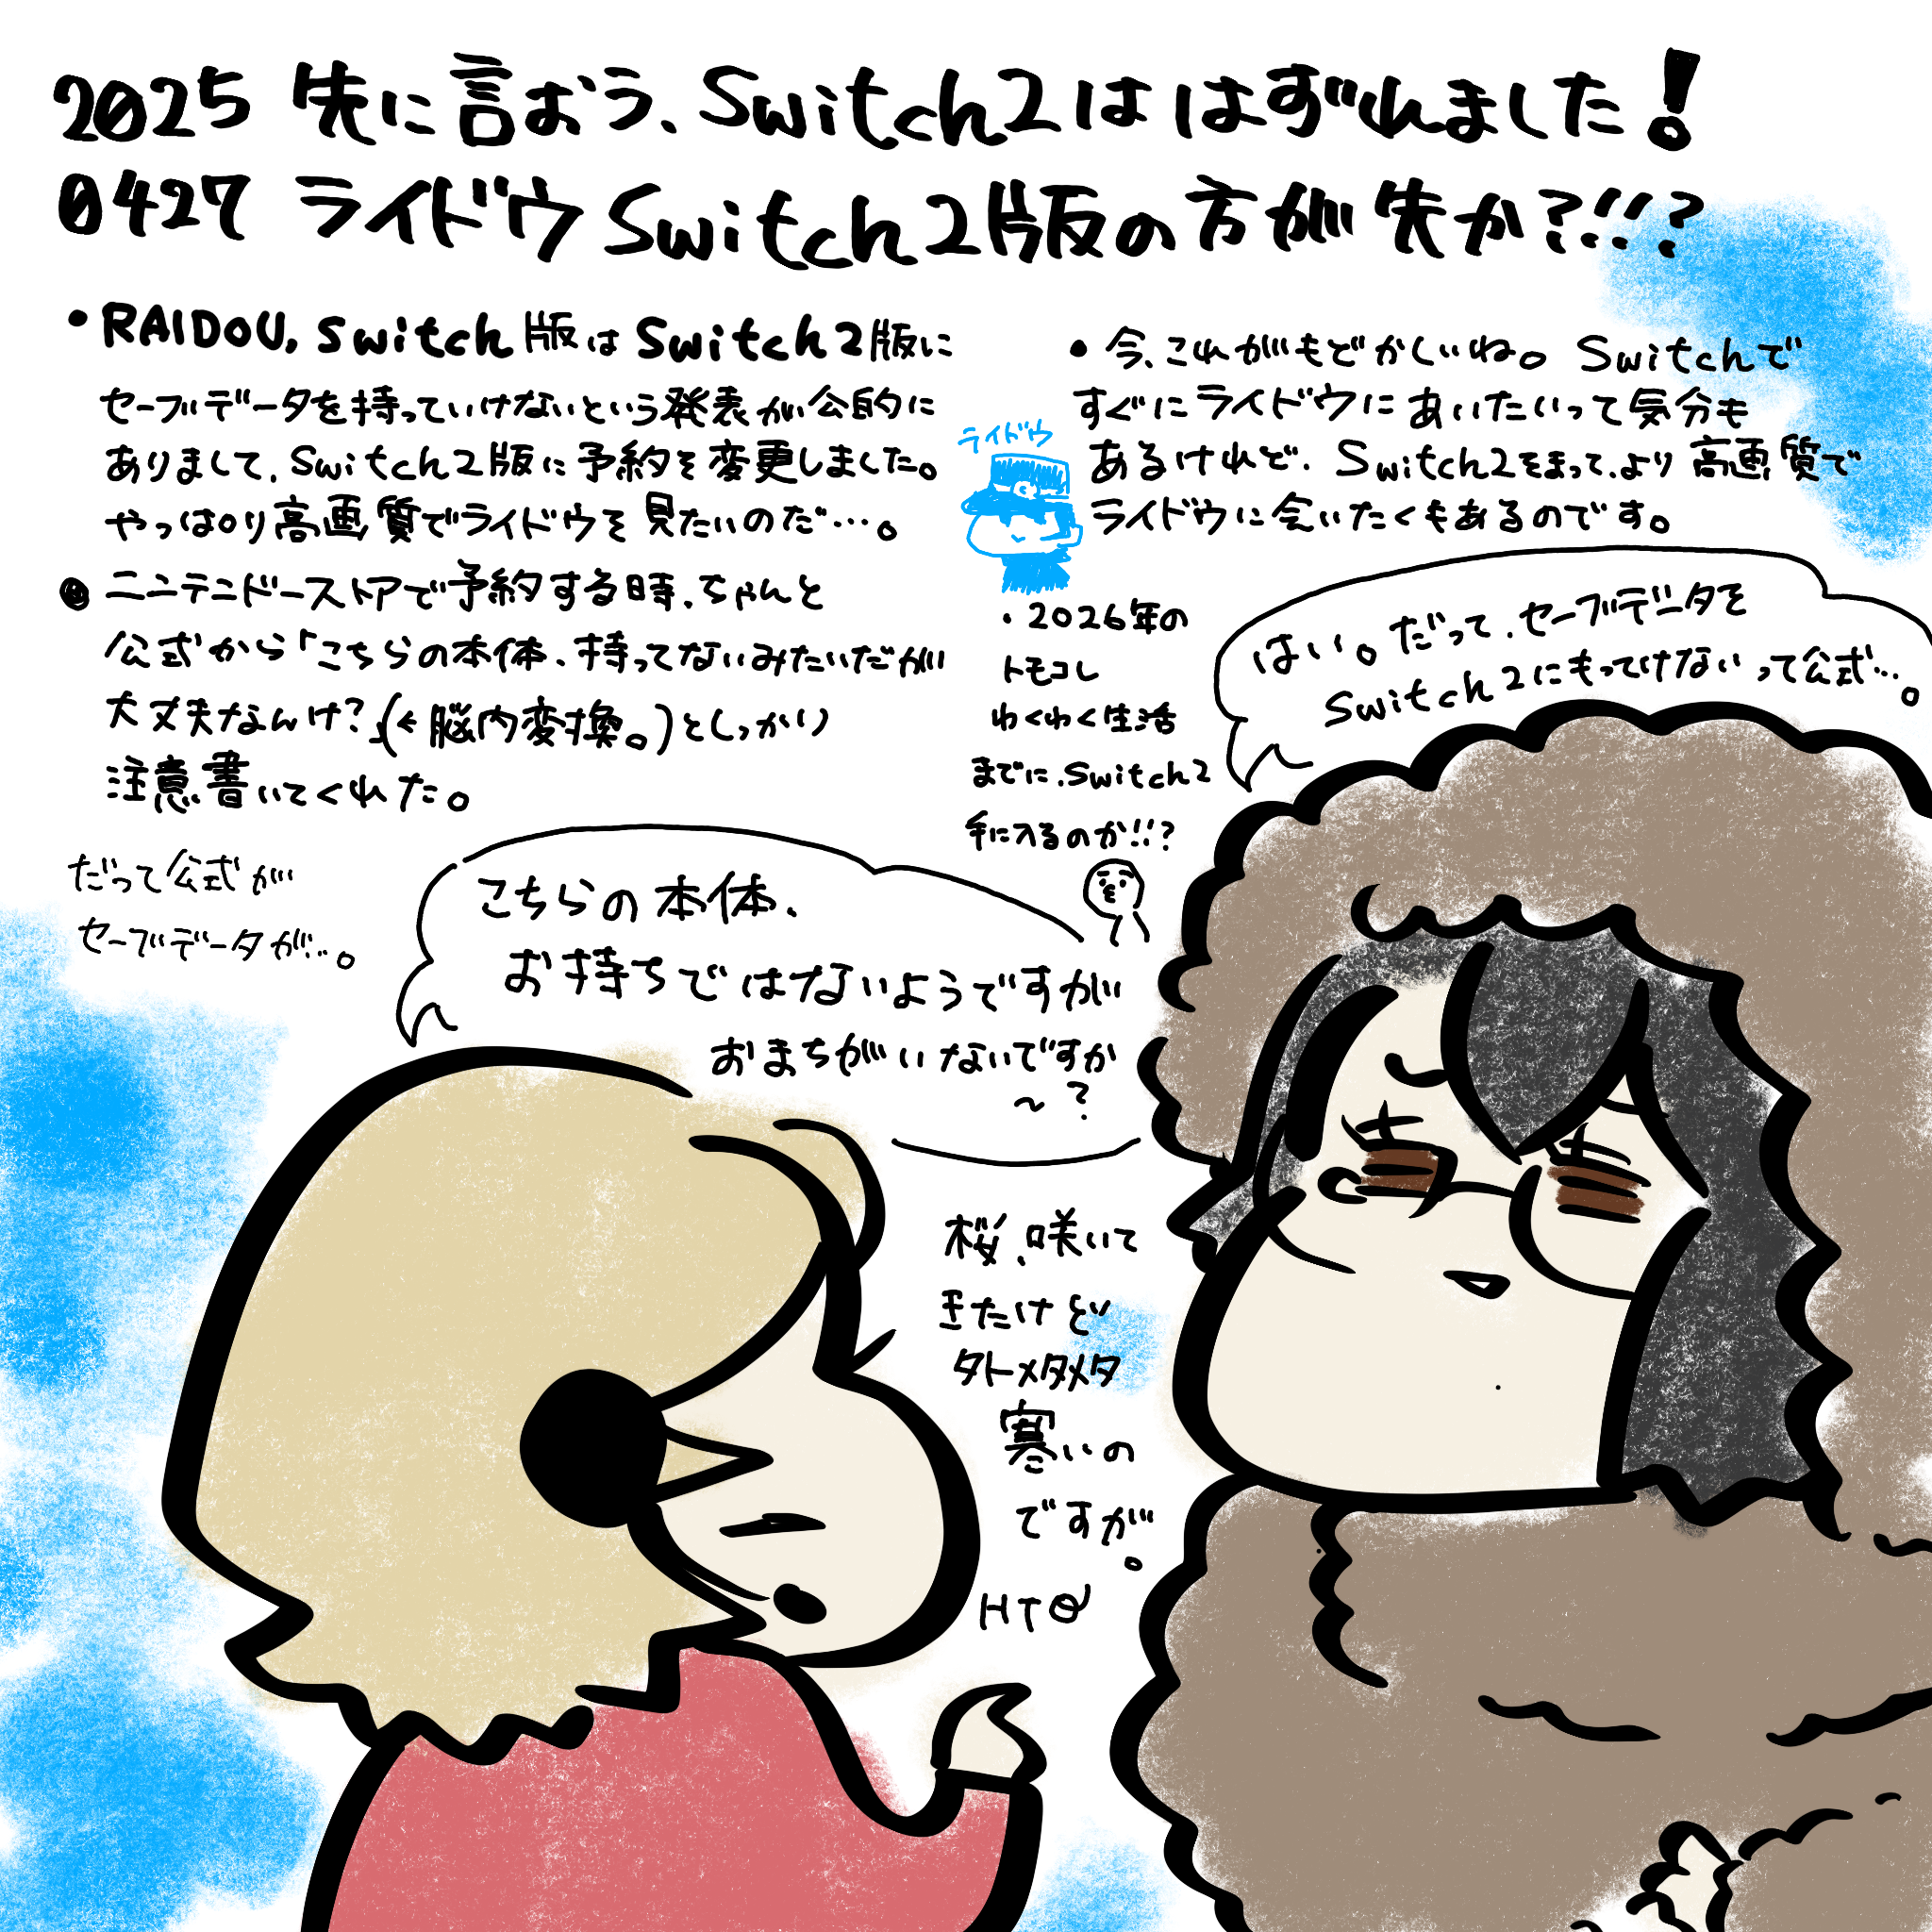 2025 先に言おう、Switch2は はずれました!
0427 ライドウ Switch2版の方が先か?!!?
・RAIDOU, Switch版は Switch2版に
セーブデータを持っていけないという発表が公的に
ありまして、Switch2版に予約を変更しました。
やっぱり高画質でライドウを見たいのだ…。
●ニンテンドーストアで予約する時、ちゃんと
公式から「こちらの本体、持ってないみたいだが
大丈夫なんけ?」(←脳内変換。)としっかり
注意書いてくれた。
だって公式が
セーブデータが…。
・今、これがもどかしいね。Switchで
すぐにライドウにあいたいって気分も
あるけれど、Switch2をまって、より高画質で
ライドウに会いたくもあるのです。
ライドウ
・2026年の
トモコレ
わくわく生活
までに、Switch2
手に入るのか!!?
はい。だって、セーブデータを
Switch2にもってけないって公式…。
こちらの本体、
お持ちではないようですが
おまちがいないですか
~?
桜、咲いて
きたけど
タトメタメタ
寒いの
ですが。
HTO